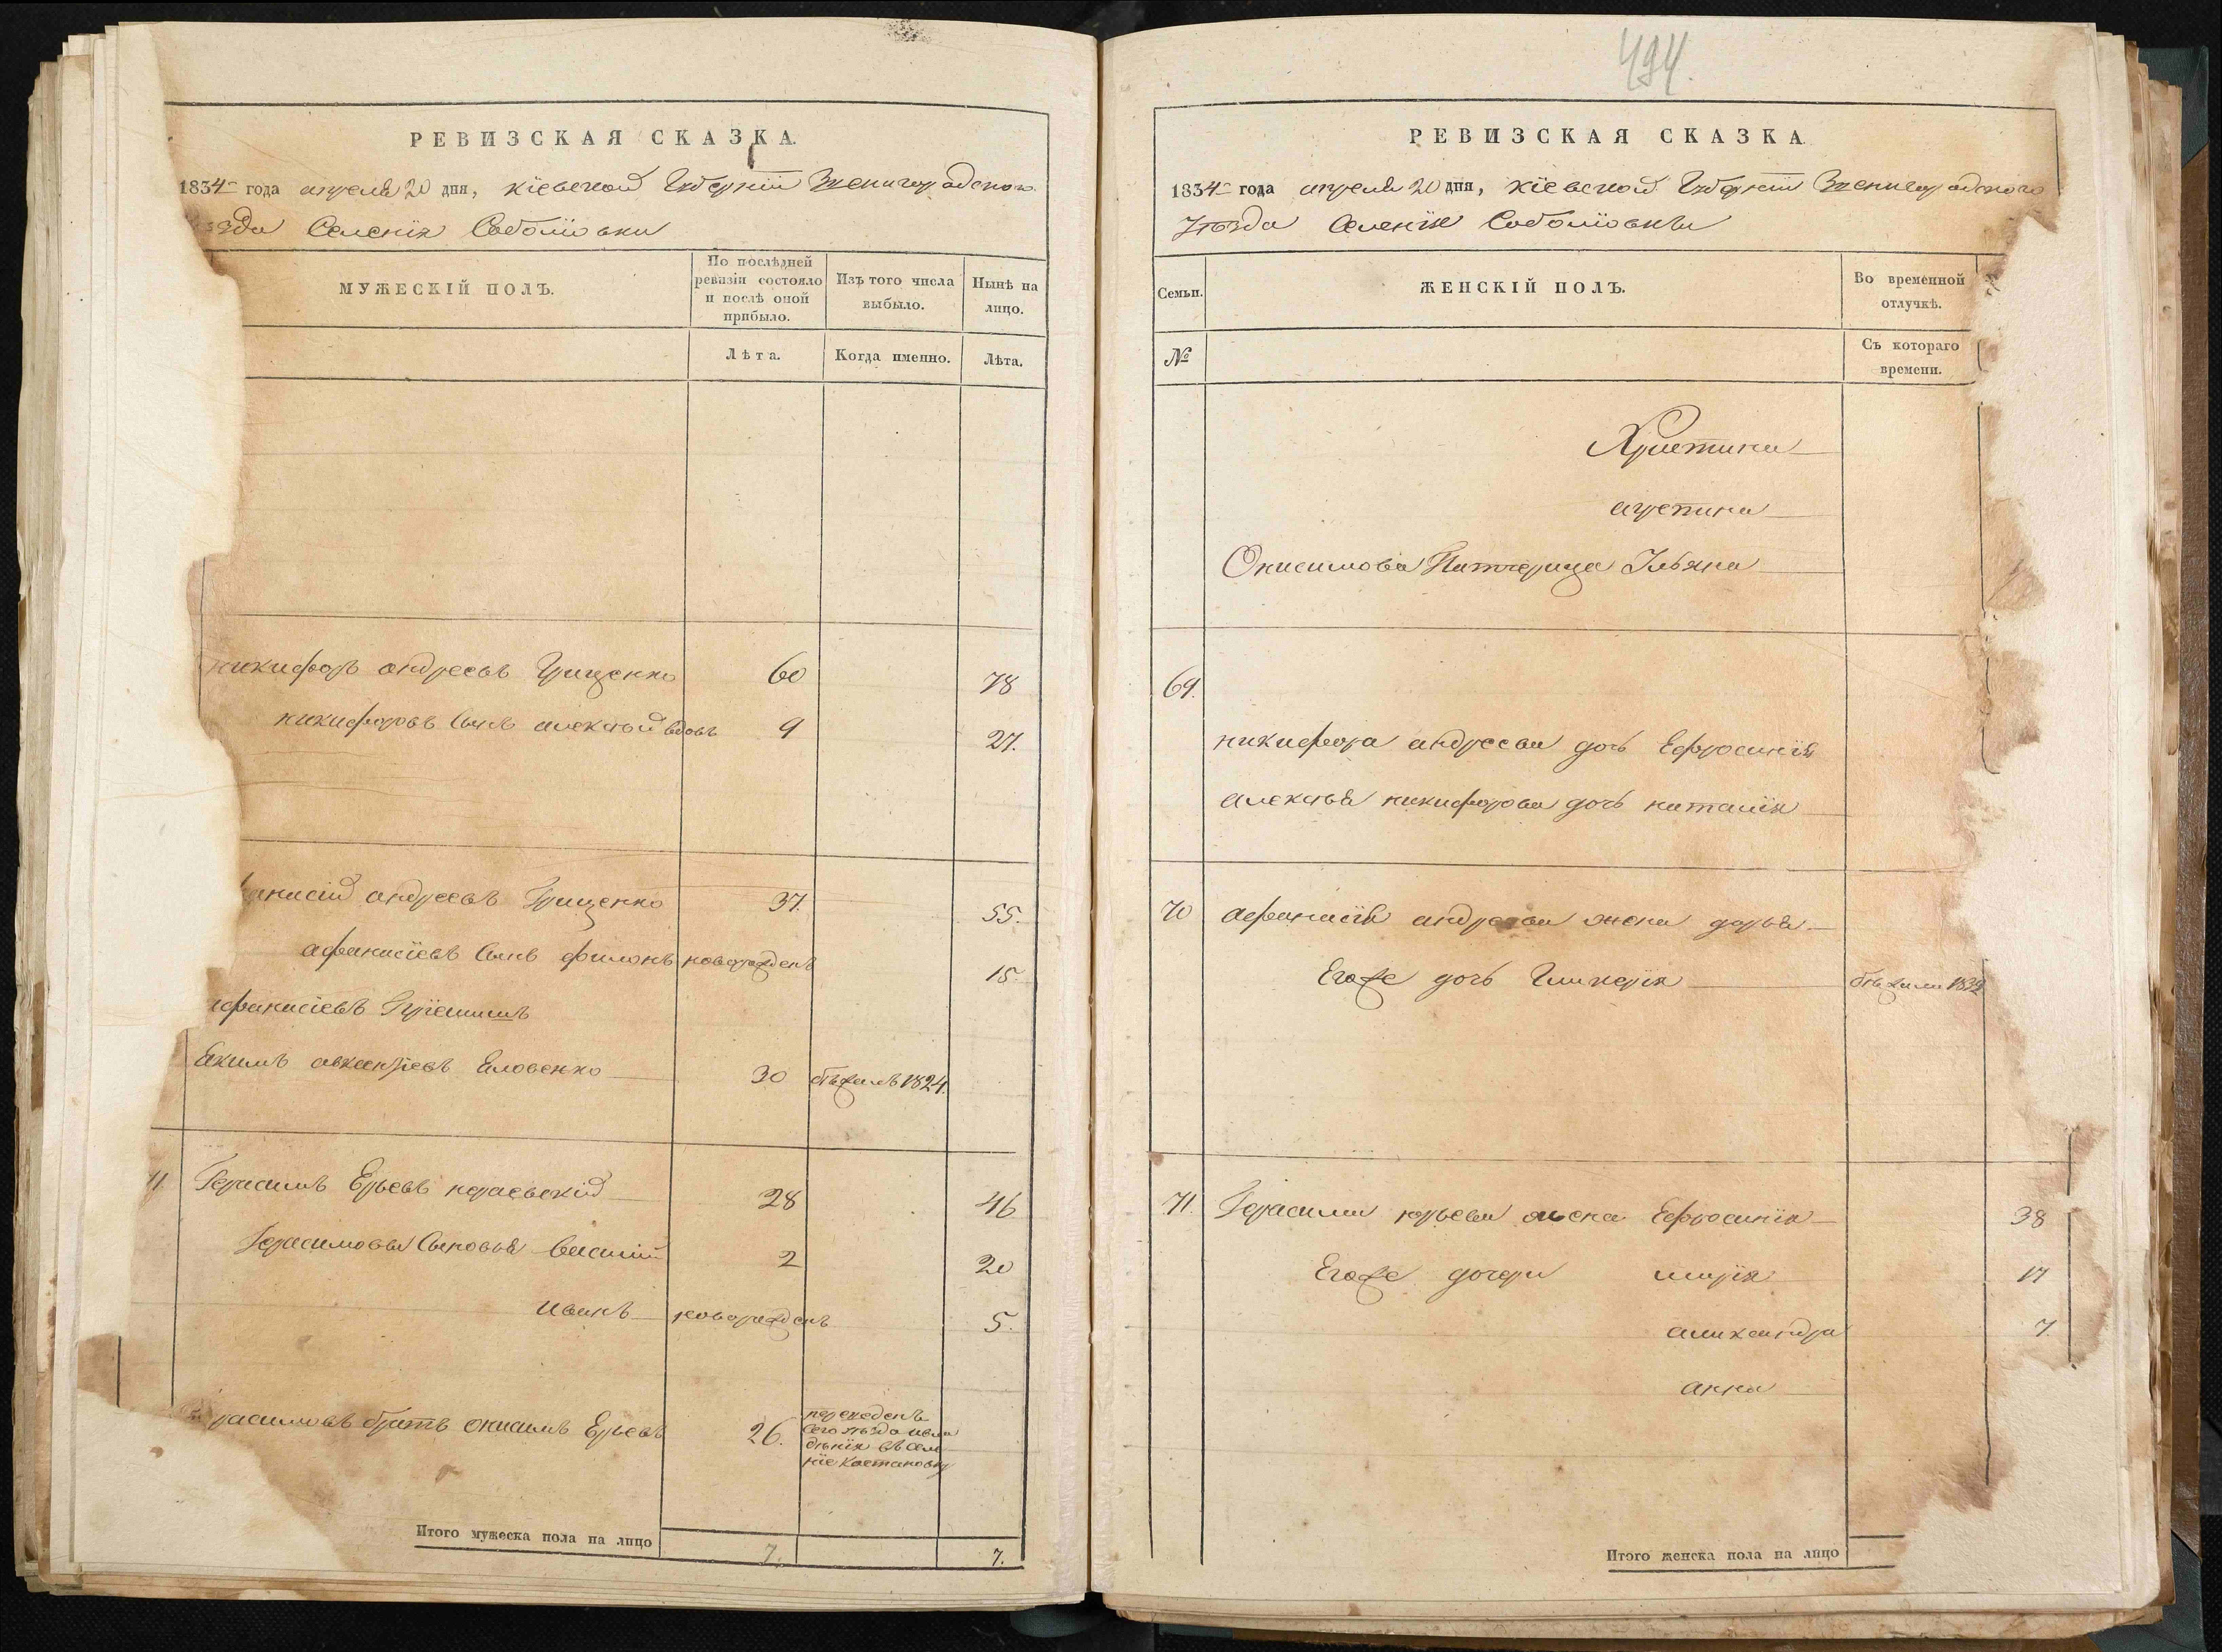 РЕВИЗСКАЯ СКАЗКА.
1834 года апреля 20 дня, Кіевской Губерніи Звенигородского
Селенія Соболіовки
МУЖЕСКІЙ ПОЛЪ.
По послѣдней ревизіи состояло и послѣ оной прибыло.
Изъ того числа выбыло.
Нынѣ на лицо.
Лѣта.
Когда именно.
Лѣта.
никифоръ андреевъ Грищенко 60 78
никифоровъ Сынъ алексѣй вдовъ 9 27.
андреевъ Грищенко 37. 55.
афанасіевъ Сынъ филонъ новорожденъ 15
афанасіевъ Пріемышъ
Екимъ Еловенко 30 бѣжалъ 1824.
Герасимъ Ерьевъ 28 46
Герасимовы Сыновья василій 2 20
иванъ новорожденъ 5.
братъ онисимъ Ерьевъ 26.
переведенъ
сего уѣзда
въ селе
ніе
Итого мужеска пола на лицо 7. 7.
494.
РЕВИЗСКАЯ СКАЗКА
1834 года апреля 20 дня, Кіевской Губерніи Звенигородского
Уѣзда Селенія Соболіовки
Семьи.
ЖЕНСКІЙ ПОЛЪ.
Во временной отлучкѣ.
№
Съ котораго времени.
Христина
Онисимова Ульяна
69.
никифора андреева дочь Ефросинія
алексѣя никифорова дочь наталія
70 афанасія андреева жена дарья
Егоже дочь Гликерія бѣжали 1832
71. Герасима юрьева жена Ефросинія 38
Егоже дочери марія 17
александра 7.
анна
Итого женска пола на лицо